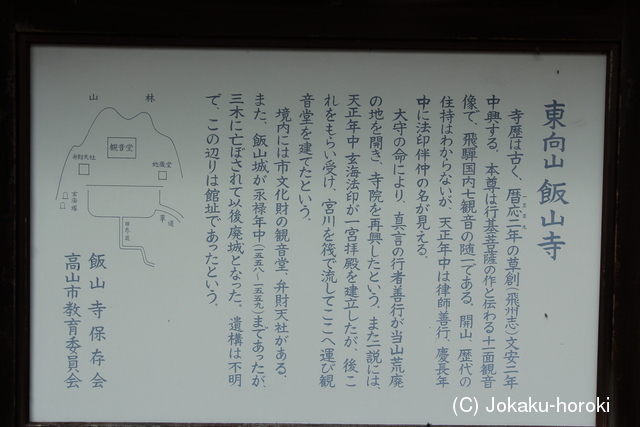 東向山 飯山寺
寺歴は古く、暦応二年の草創(飛州志)文安二年
中興する。本尊は行基菩薩の作と伝わる十一面観音
像で、飛騨国内七観音の随一である。開山、歴代の
住持はわからないが、天正年中は律師善行、慶長年
中に法印伴仲の名が見える。
大守の命により、真言の行者善行が当山荒廃
の地を開き、寺院を再興したという。また一説には、
天正年中玄海法印が一宮拝殿を建立したが、後こ
れをもらい受け、宮川を筏で流してここへ運び観
音堂を建てたという。
境内には市文化財の観音堂、弁財天社がある。
また、飯山城が永禄年中(一五五八〜一五五九)まであったが、
三木に亡ぼされて以後廃城となった。遺構は不明
で、この辺りは館址であったという。
飯山寺保存会
高山市教育委員会
山 林
観音堂
弁財天社
地蔵堂
玄海塚
車道
(C) Jokaku-horoki